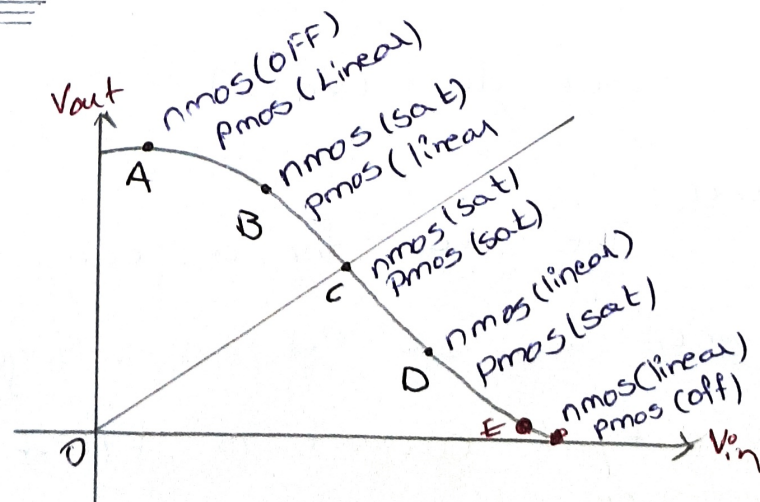 Vout
nmos (OFF)
pmos (Linear)
A
nmos (sat)
pmos (linear
B
nmos (sat)
Pmos (sat)
C
nmos (linear)
pmos (sat)
D
nmos (linear)
pmos (off)
E
O
Vin